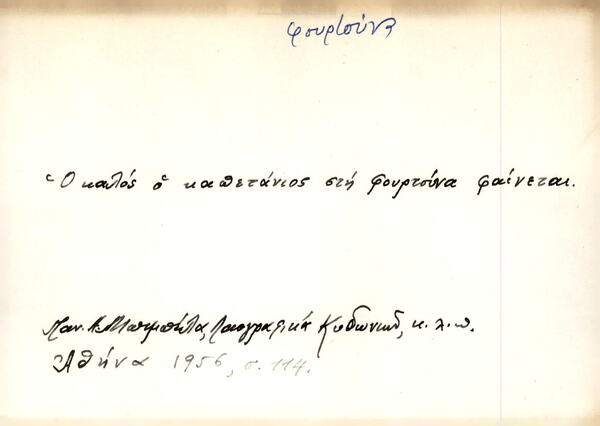 φουρτούνα
Ὁ καλός ὁ καπετάνιος στή φουρτούνα φαίνεται.
Παν. Λαογραφικά Κυδωνιῶν, κ.λ.π.
Ἀθήνα 1956, σ. 114.